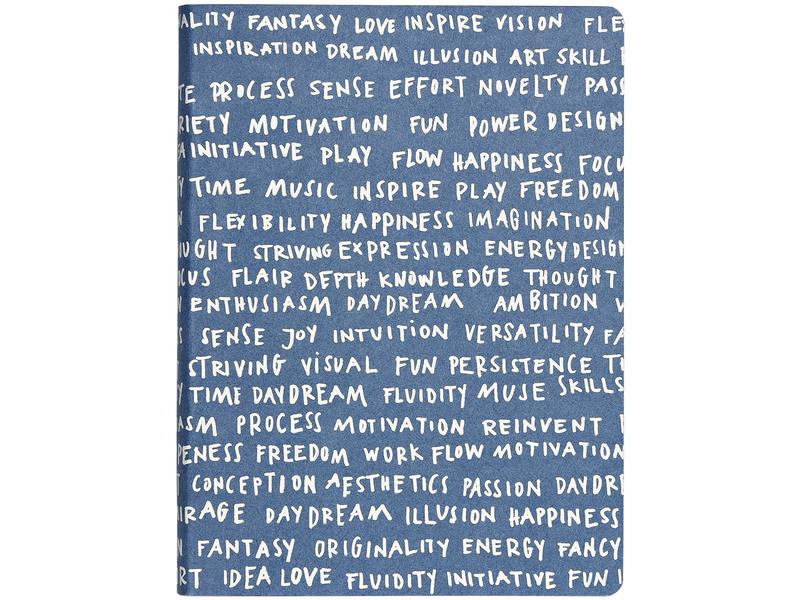 ALITY FANTASY LOVE INSPIRE VISION FLE
INSPIRATION DREAM ILLUSION ART SKILL
TE PROCESS SENSE EFFORT NOVELTY PASS
RIETY MOTIVATION FUN POWER DESIGN
A INITIATIVE PLAY FLOW HAPPINESS FOCU
Y TIME MUSIC INSPIRE PLAY FREEDOM
N FLEXIBILITY HAPPINESS IMAGINATION
UGHT STRIVING EXPRESSION ENERGY DESIGN
CUS FLAIR DEPTH KNOWLEDGE THOUGHT
ENTHUSIASM DAYDREAM AMBITION V
S SENSE JOY INTUITION VERSATILITY FA
STRIVING VISUAL FUN PERSISTENCE T
Y TIME DAYDREAM FLUIDITY MUSE SKILLS
ASM PROCESS MOTIVATION REINVENT
PENESS FREEDOM WORK FLOW MOTIVATION
T CONCEPTION AESTHETICS PASSION DAYDR
IRAGE DAYDREAM ILLUSION HAPPINESS
N FANTASY ORIGINALITY ENERGY FANCY
RT IDEA LOVE FLUIDITY INITIATIVE FUN I